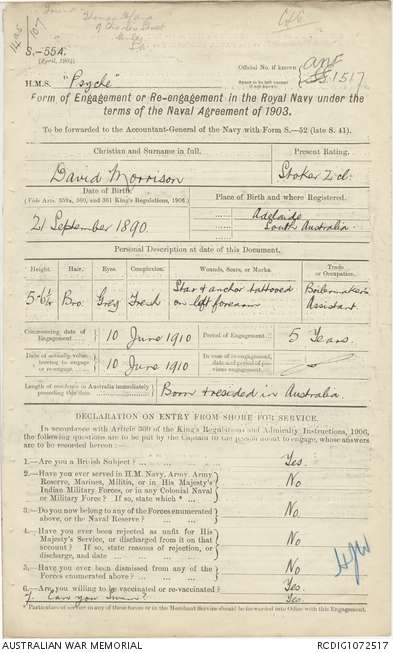 S.—55A.
(April, 1904)
H.M.S. "Psyche"
Official No. if known
SS1517
Form of Engagement or Re-engagement in the Royal Navy under the
terms of the Naval Agreement of 1903.
To be forwarded to the Accountant-General of the Navy with Form S.—52 (late S. 41).
Christian and Surname in full.
Present Rating.
David Morrison
Stoker 2 cl:
Date of Birth
(Vide Arts. 359a, 360, and 361 King's Regulations, 1906.)
Place of Birth and where Registered.
21 September 1890
Adelaide
South Australia
Personal Description at date of this Document.
Height. Hair. Eyes. Complexion. Wounds, Scars, or Marks. Trade or Occupation.
Bro: Grey Fresh Star & anchor tattooed on left forearm Boilermaker's Assistant.
Commencing date of Engagement 10 June 1910 Period of Engagement 5 Years.
Date of actually volunteering to engage or re-engage 10 June 1910 In case of re-engagement, date and period of previous engagement
Length of residence in Australia immediately preceding this date Born & resided in Australia.
DECLARATION ON ENTRY FROM SHORE FOR SERVICE.
In accordance with Article 360 of the King's Regulations and Admiralty Instructions, 1906,
the following questions are to be put by the Captain to the person about to engage, whose answers
are to be recorded hereon:—
1.—Are you a British Subject? Yes.
2.—Have you ever served in H.M. Navy, Army, Army
Reserve, Marines, Militia, or in His Majesty's
Indian Military Forces, or in any Colonial Naval
or Military Force? If so, state which * No
3.—Do you now belong to any of the Forces enumerated
above, or the Naval Reserve? No.
4.—Have you ever been rejected as unfit for His
Majesty's Service, or discharged from it on that
account? If so, state reasons of rejection, or
discharge, and date No.
5.—Have you ever been dismissed from any of the
Forces enumerated above? No.
6.—Are you willing to be vaccinated or re-vaccinated? Yes.
7. Can you Swim? Yes.
* Particulars of service in any of these forces or in the Merchant Service should be forwarded into Office with this Engagement.
AUSTRALIAN WAR MEMORIAL
RCDIG1072517